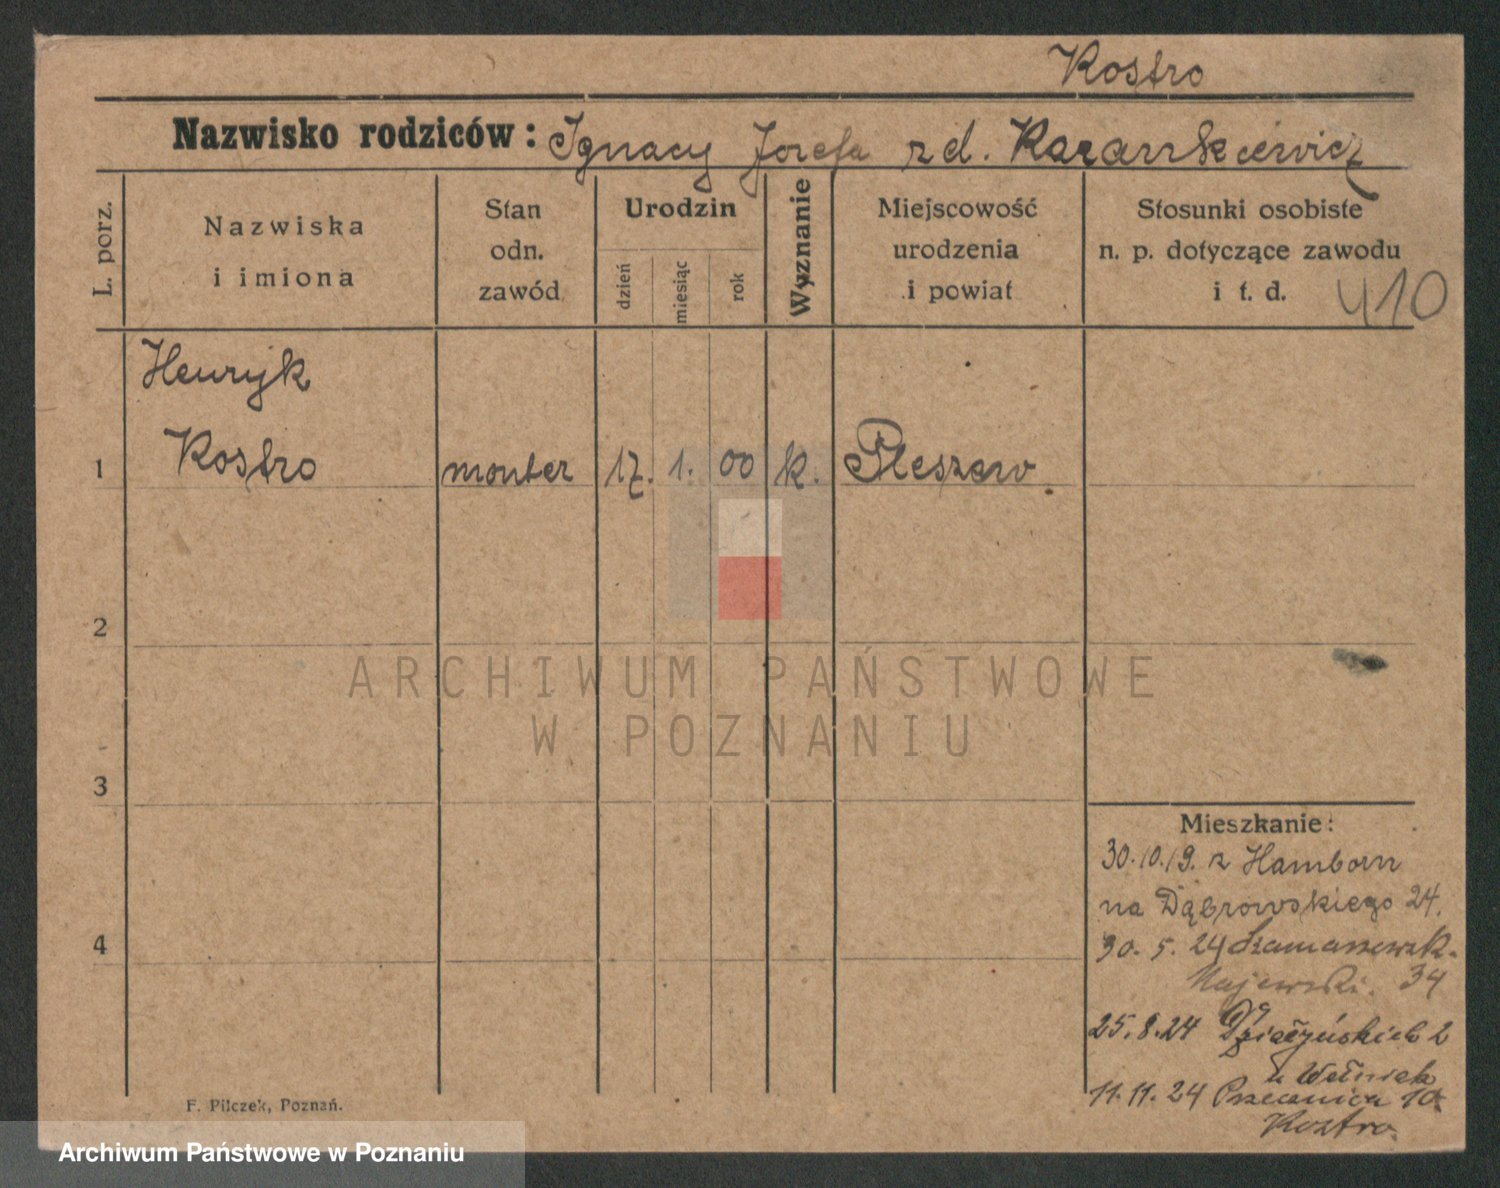 Kostro
Nazwisko rodziców: Ignacy Józefa z d.
L. porz.
Nazwiska
i imiona
Stan
odn.
zawód
Urodzin
dzień
miesiąc
rok
Wyznanie
Miejscowość
urodzenia
i powiat
Stosunki osobiste
n. p. dotyczące zawodu
i t. d.
410
Henryk
1 Kostro monter 17. 1. 00 k. Pleszew
2
ARCHIWUM PAŃSTWOWE
W POZNANIU
3
Mieszkanie:
30.10.19. z Hamborn
na Dąbrowskiego 24.
4
30. 5. 24
Majewski. 34
25.8.24 Działyńskich 2
u
11.11.24 10
Kostro
F. Pilczek, Poznań.
Archiwum Państwowe w Poznaniu